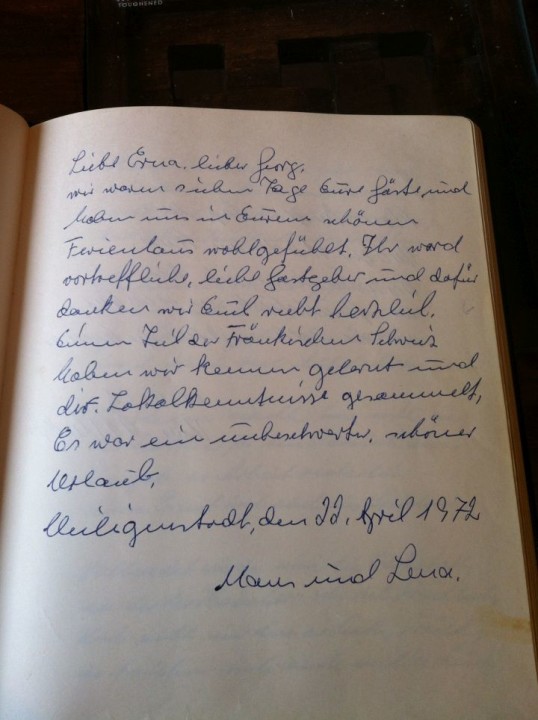 Liebe Erna, lieber Georg,
wir waren sieben Tage Eure Gäste und
haben uns in Eurem schönen
Ferienhaus wohlgefühlt. Ihr ward
vortreffliche, liebe Gastgeber und dafür
danken wir Euch recht herzlich.
Einen Teil der Fränkischen Schweiz
haben wir kennen gelernt und
div. Lokalkenntnisse gesammelt,
Es war ein unbeschwerter, schöner
Urlaub,
Heiligenstadt, den 22. April 1972
und Lena.